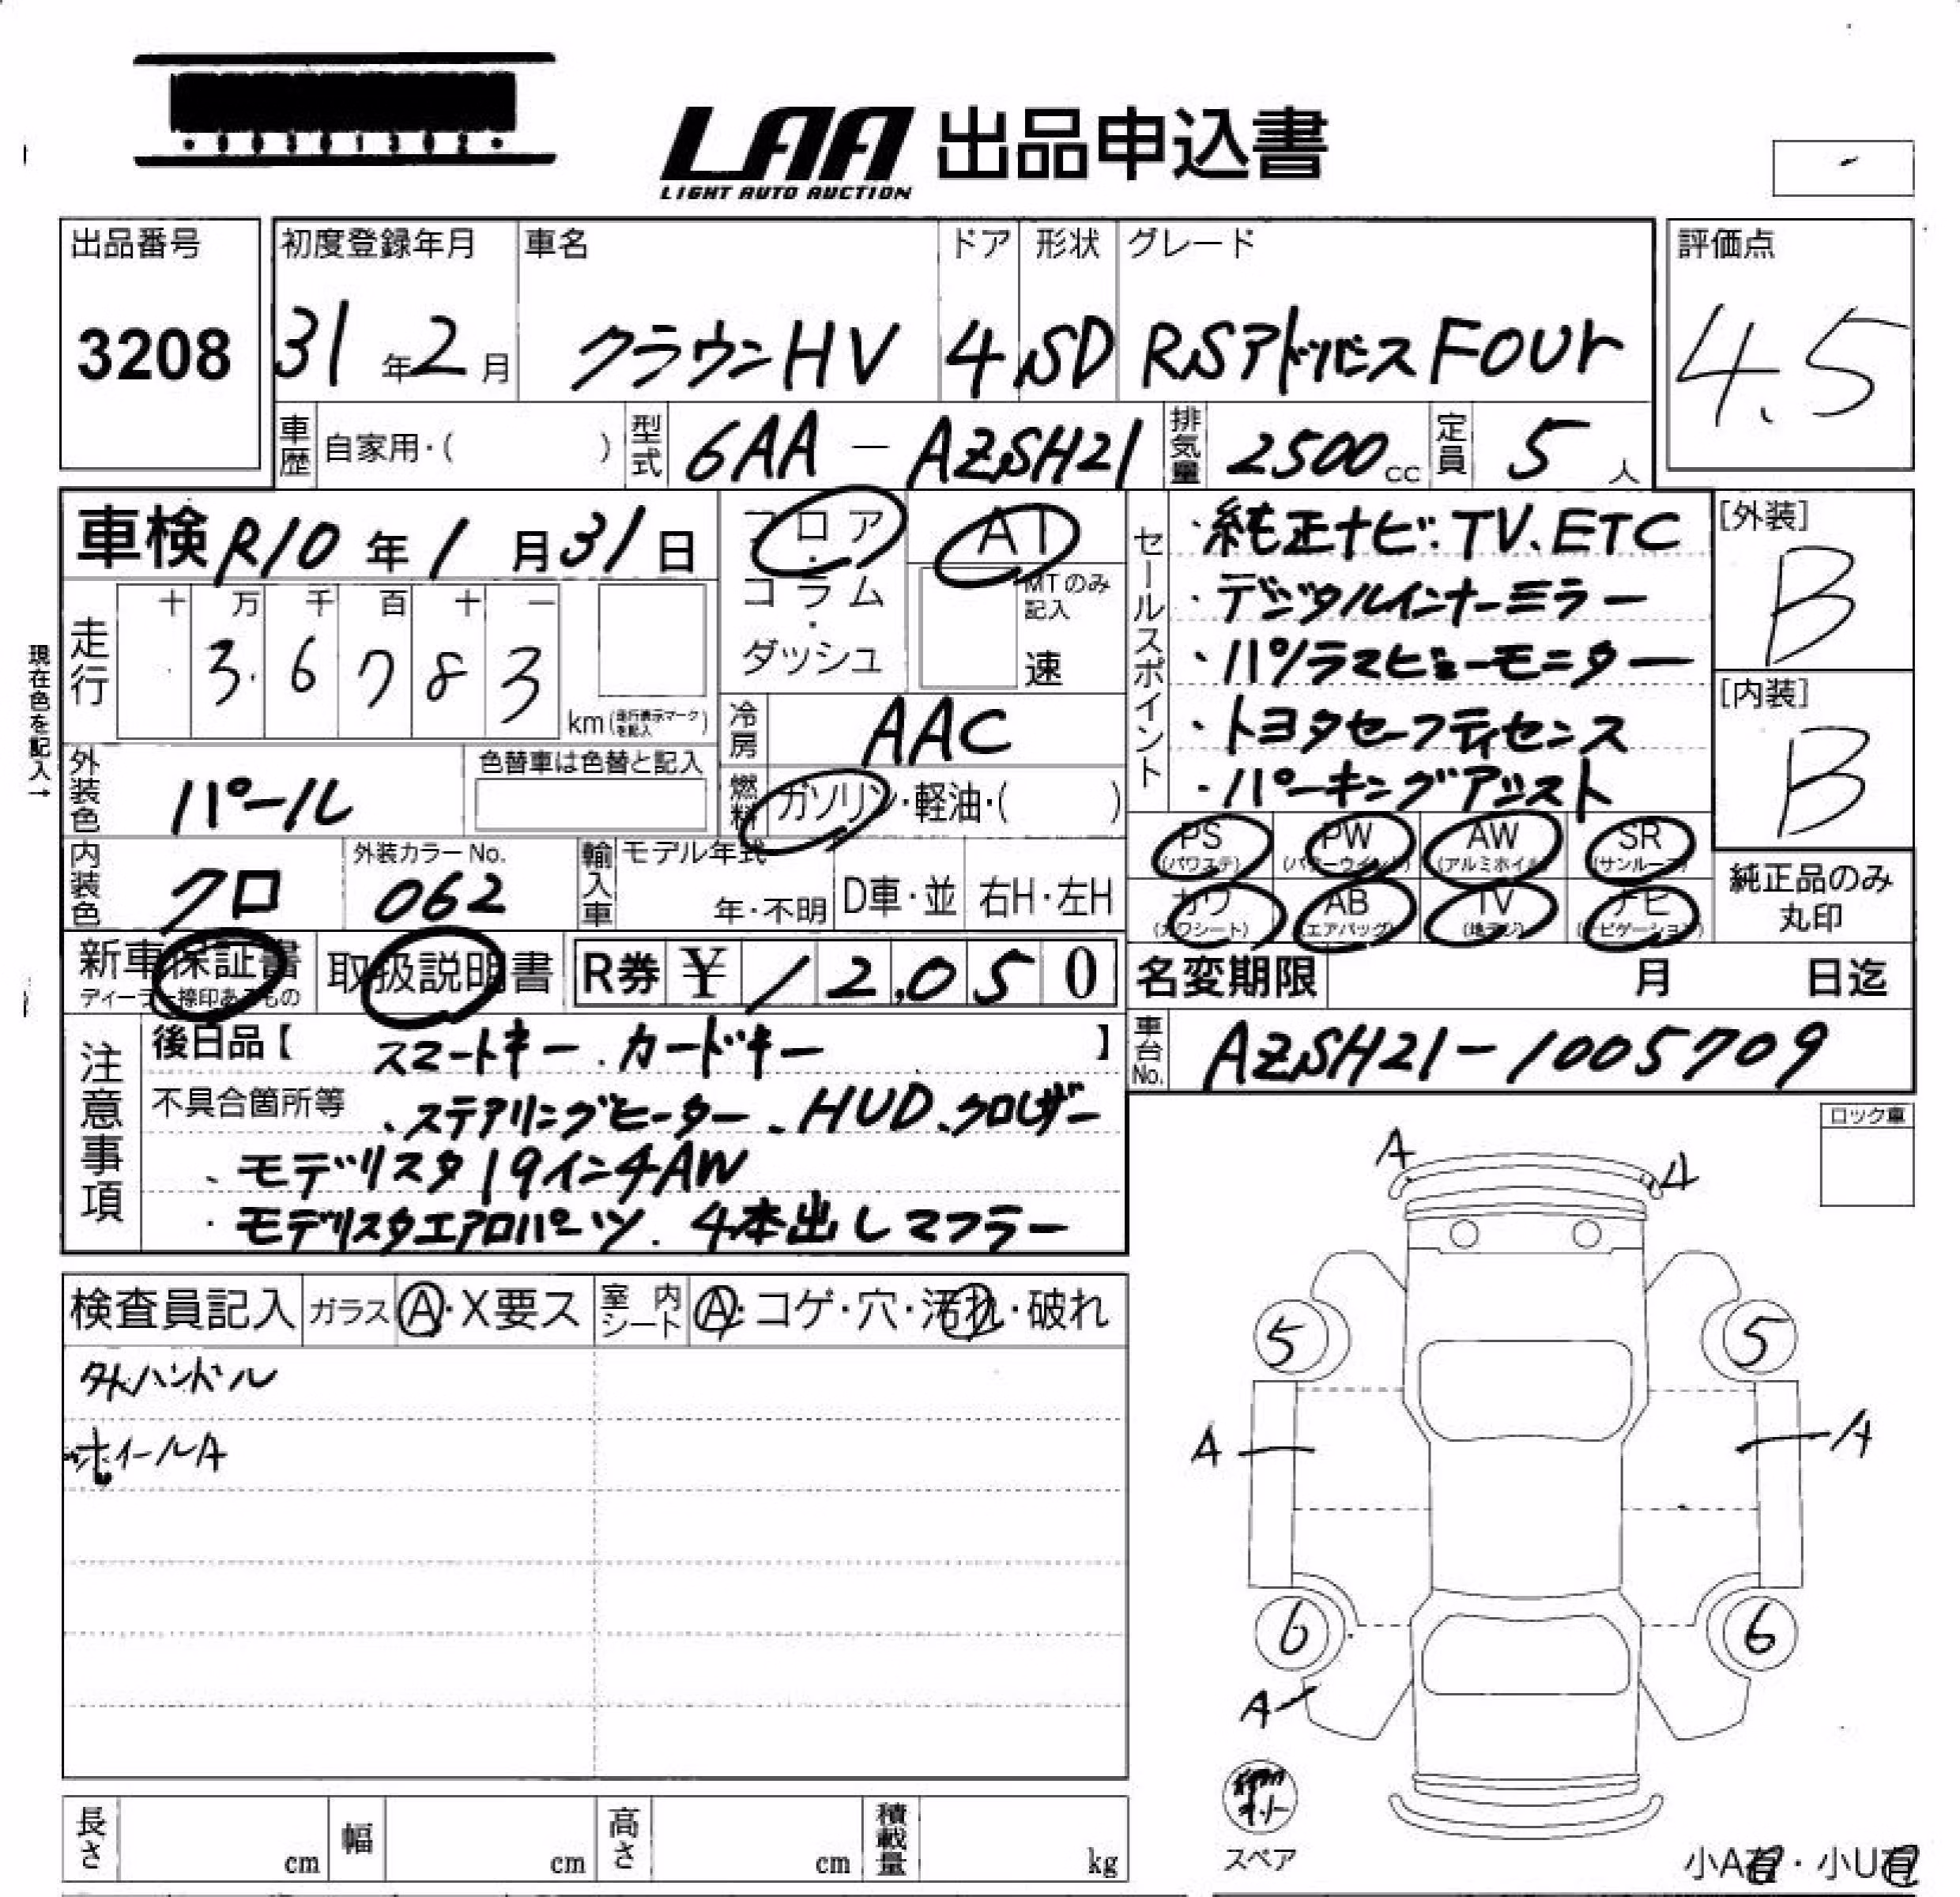 LAA 出品申込書
LIGHT AUTO AUCTION
出品番号
3208
初度登録年月
31年2月
車名
クラウンHV
ドア
4
形状
SD
グレード
RSアドバンス Four
評価点
4.5
車歴
自家用・( )
型式
6AA-AZSH21
排気量
2500cc
定員
5人
車検 R10年1月31日
フロア・コラム・ダッシュ
AT
MTのみ記入
速
セールスポイント
・純正ナビ.TV、ETC
・デジタルインナーミラー
・パノラマビューモニター
・トヨタセーフティセンス
・パーキングアシスト
[外装]
B
[内装]
B
現在色を記入→
走行
十 万 千 百 十 一
3 6 7 8 3
km(走行表示マークを記入)
冷房
AAC
外装色
パール
色替車は色替と記入
燃料
ガソリン・軽油・( )
PS (パワステ)
PW (パワーウインド)
AW (アルミホイル)
SR (サンルーフ)
カワ (カワシート)
AB (エアバッグ)
TV (地デジ)
ナビ (ナビゲーション)
純正品のみ丸印
内装色
クロ
外装カラーNo.
062
輸入車
モデル年式
年・不明
D車・並
右H・左H
新車保証書
ディーラー捺印あるもの
取扱説明書
R券 ¥ 12,050
名変期限 月 日迄
車台No.
AZSH21-1005709
注意事項
後日品【 スマートキー、カードキー 】
不具合箇所等 、ステアリングヒーター、HUD、クロレザー
、モデリスタ19インチAW
・モデリスタエアロパーツ、4本出しマフラー
ロック車
検査員記入
ガラス Ⓐ・X要ス
室内シート Ⓐ・コゲ・穴・汚れ・破れ
外ハンドル
ホイールA
A
A
5
5
A
A
6
6
A
スペア
長さ cm
幅 cm
高さ cm
積載量 kg
小A有・小U有